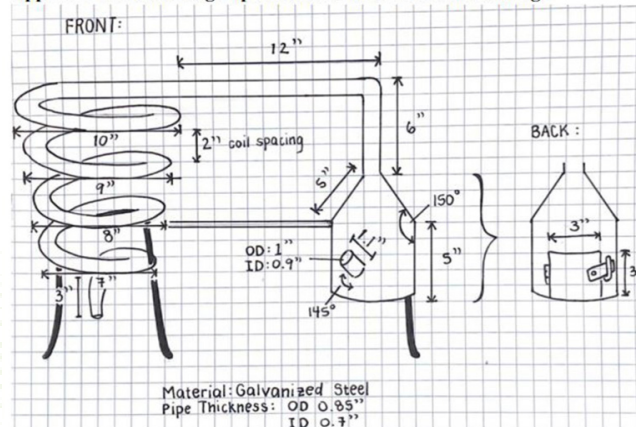 FRONT:
12"
10"
2" coil spacing
6"
BACK:
9"
5"
150°
8"
3"
OD: 1"
ID: 0.9"
1"
5"
3"
7"
145°
3
Material: Galvanized Steel
Pipe Thickness: OD 0.85"
ID 0.7"